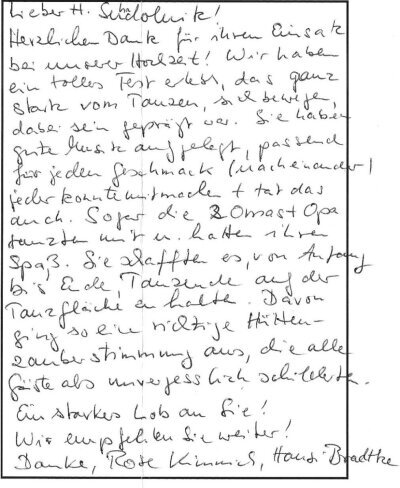 Lieber H. Schdolnik!
Herzlichen Dank für ihren Einsatz
bei unserer Hochzeit! Wir haben
ein tolles Fest erlebt, das ganz
stark vom Tanzen, sich bewegen,
dabei sein geprägt war. Sie haben
gute Musik aufgelegt, passend
für jeden Geschmack (nacheinander)
jeder konnte mitmachen + tat das
auch. Sogar die 2 Omas + Opa
tanzten mit u. hatten ihren
Spaß. Sie schafften es, von Anfang
bis Ende, Tanzende auf der
Tanzfläche zu halten. Davon
ging so ein richtige Hütten-
zauberstimmung aus, die alle
Gäste als unvergesslich schilderten.
Ein starkes Lob an Sie!
Wir empfehlen Sie weiter!
Danke, Rose Kimmich, Hansi Bradtke